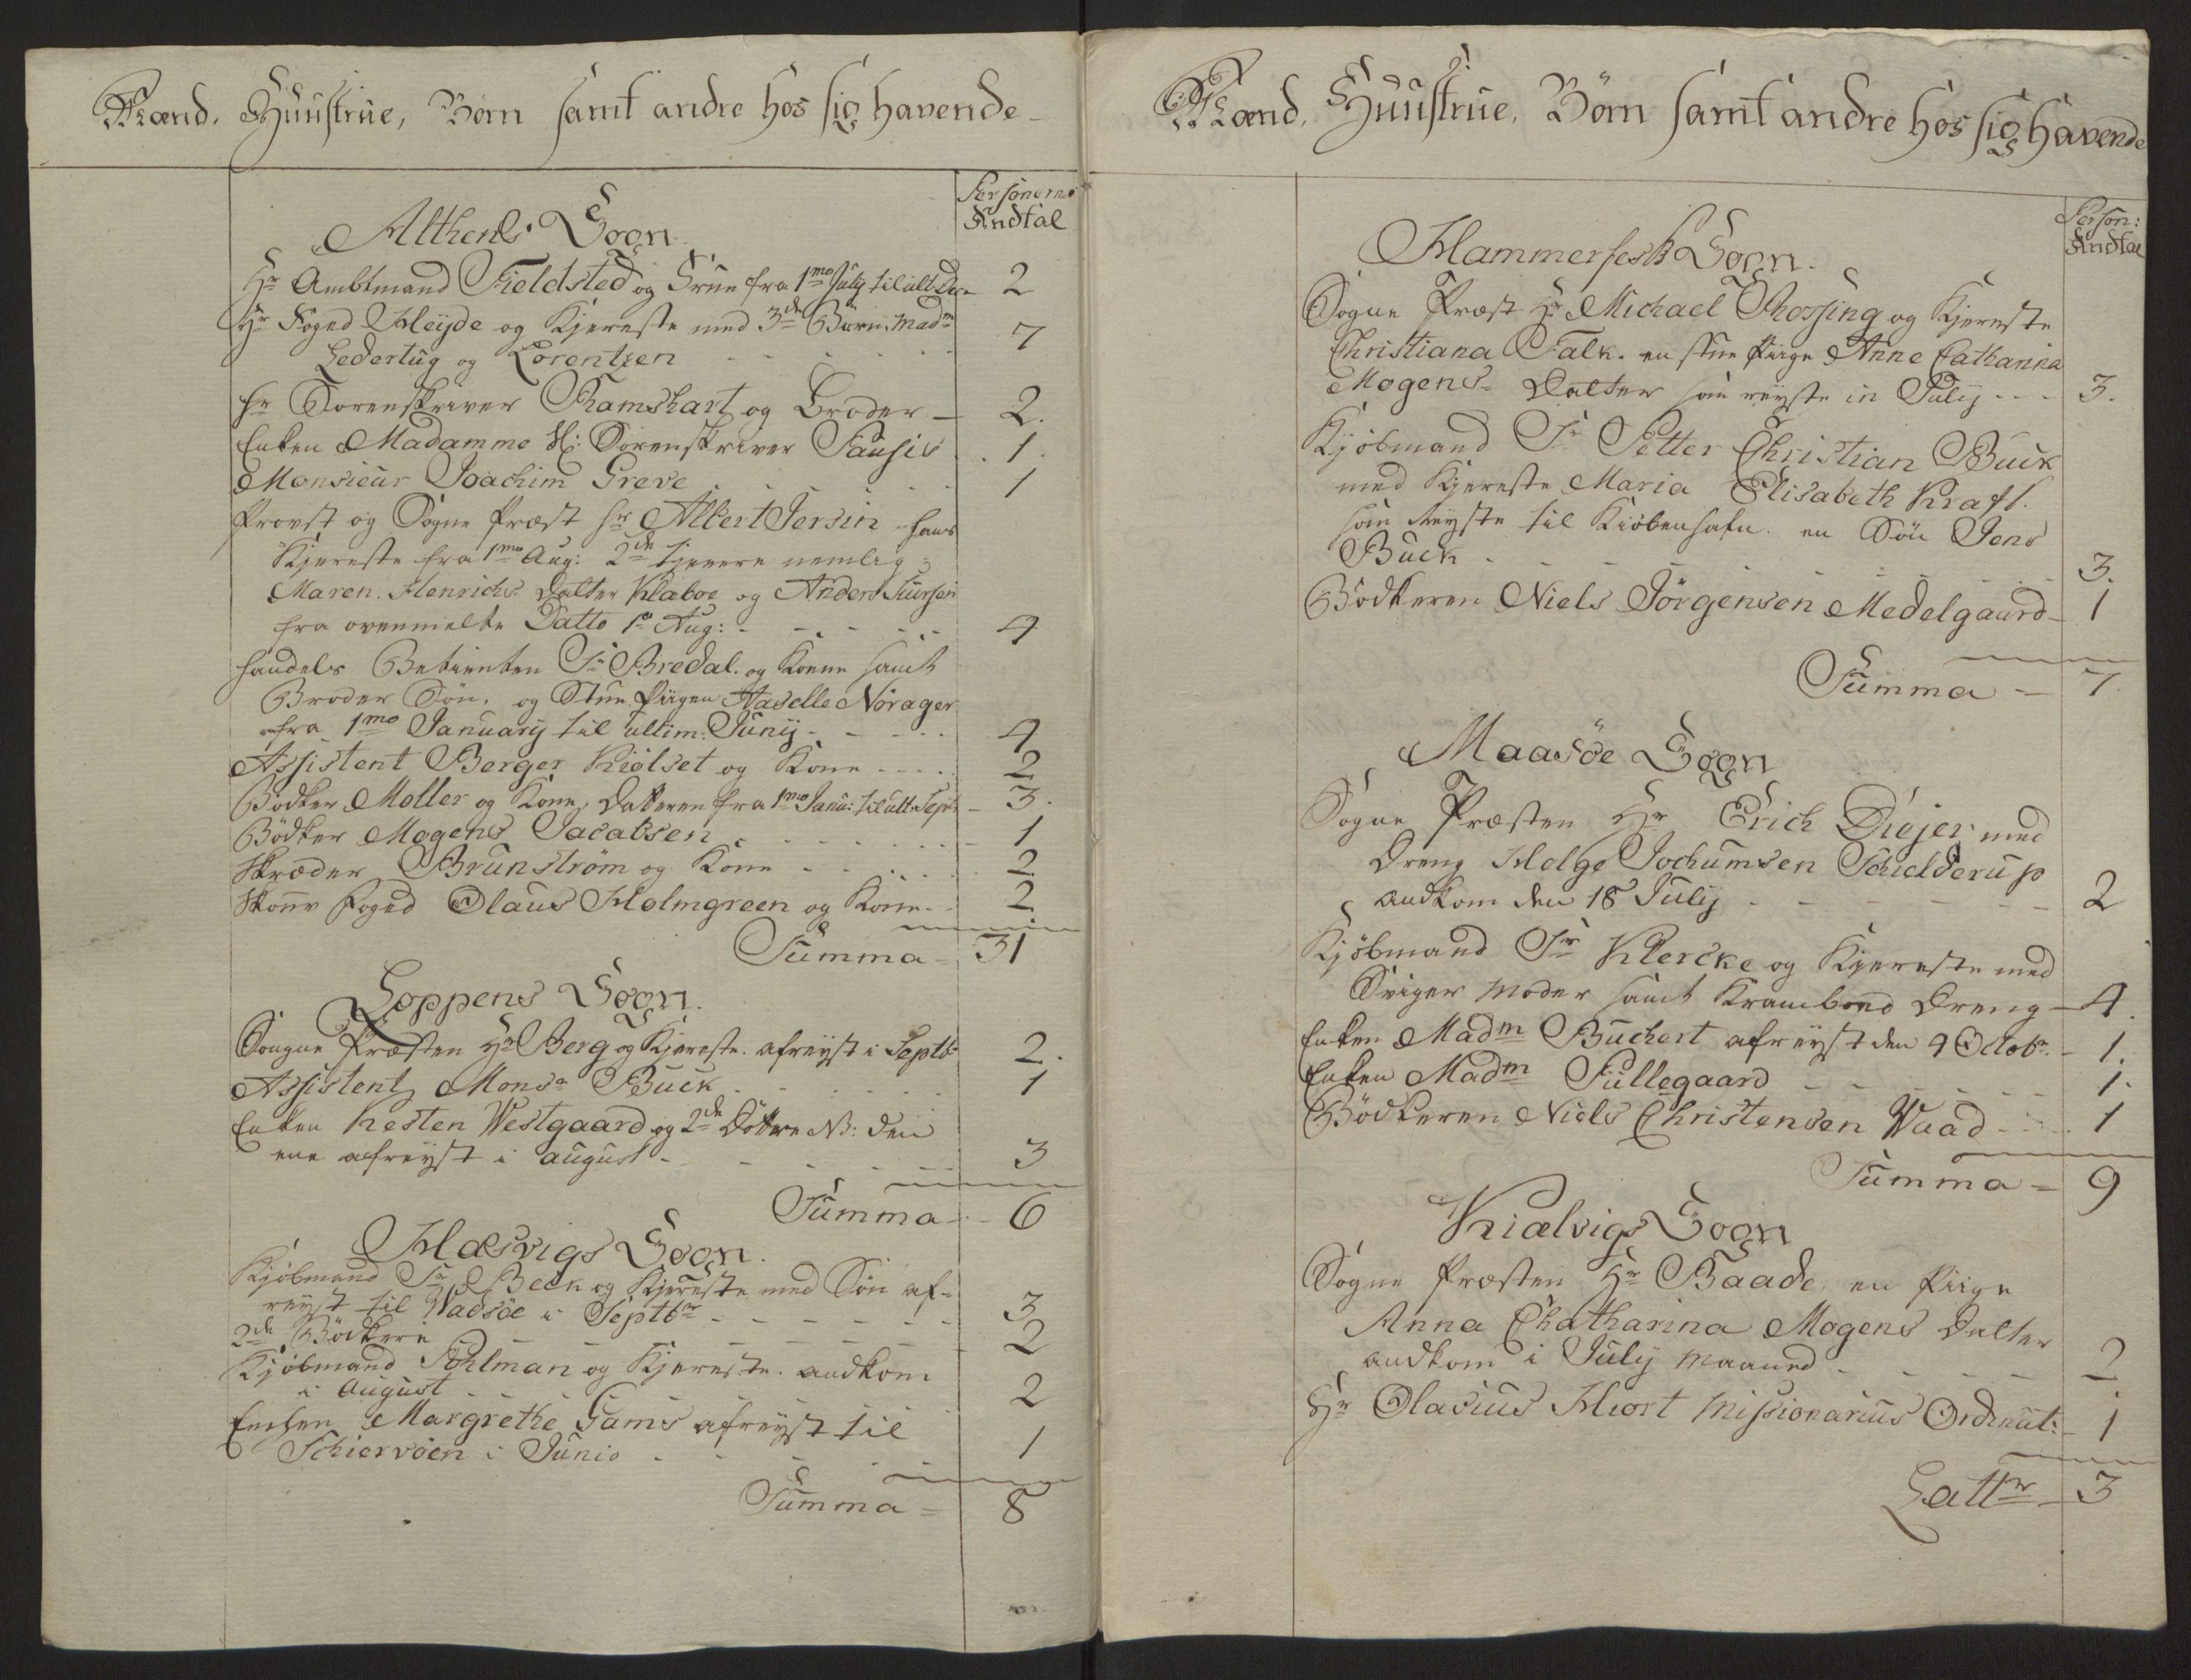 Mand, Huustrue, Børn samt andre hos sig havende
Personernes
Andtal
Althens Sogn
Hr Ambtmand Fieldsted og Frue fra 1mo July til ult: Dec 2
Hr Foged Heyde og Kjereste med 3de Børn, Madm
Ledertug og Lorentzen 7
hr Sorenskriver Ramshart og Broder 2.
Enken Madamme Sl: Sorenskriver Pausis 1
Monsieur Joachim Greve 1
Provst og Sogne Præst hr Albert Jersin hans
Kjereste fra 1mo Aug: 2de tienere nemlig
Maren Henrichs Datter Klaboe og Anders Siursen
fra ovenmelte Datto 1o Aug: 4
Handels Betienten Sr Bredal og Konne samt
Broder Søn, og Stue Piigen Haselle Nørager
fra 1mo January til ultim: Junij 4
Assistent Berger Kiølset og Kone 2
Bødker Møller og Kone, Datteren fra 1mo Janu: til ult: Sept: 3.
Bødker Mogens Jacabsen 1
Skræder Brunstrøm og Kone 2
Skous Foged Olaus Holmgreen og Kone 2
Summa 31
Loppens Sogn.
Songne Præsten Hr Berg og Kjereste afreyst i Septb: 2.
Assistent Monsr Buck 1
Enken Kesten Westgaard og 2de Døttre NB: den
ene afreyst i august 3
Summa 6
Hasvigs Sogn.
Kjøbmand Sr Beck og Kjereste med Søn af-
reyst til Wadsøe i Septbr 3
2de Bødkere 2
Kjøbmand Pohlman og Kjereste andkom
i August 2
Enken Margrethe Gams afreyst til
Schiervøen i Junio 1
Summa = 8
Mand, Huustrue, Børn samt andre hos sig havende
Person:
Andtal
Hammerfest Sogn.
Sogne Præst Hr Michael Rossing og Kjereste
Christiana Falk. en stue Piige Anne Catharina
Mogens Datter som reyste in Julij 3.
Kjøbmand Sr Petter Christian Buck
med Kjereste Maria Elisabeth Kraft.
som reyste til Kiøbenhafn. en Søn Jens
Buck 3.
Bødkeren Niels Jørgensen Medelgaard 1
Summa 7
Maasöe Sogn
Sogne Præsten Hr Erich Drejer med
Dreng Helge Jochumsen Schielderup
andkom den 18 Julij 2
Kjøbmand Sr Klercke og Kjereste med
Sviger Moder samt Krambood Dreng 4.
Enken Madm Buchert afreyst den 4 Octobr. 1.
Enken Madm Füllegaard 1.
Bødkeren Niels Christensen Waad 1
Summa = 9
Kiælvigs Sogn
Sogne Præsten Hr Baade, en Piige
Anna Chatharina Mogens Datter
andkom i Julij Maaned 2
Hr Olasius Hiort Missionarius Ordinat: 1
Lattr 3